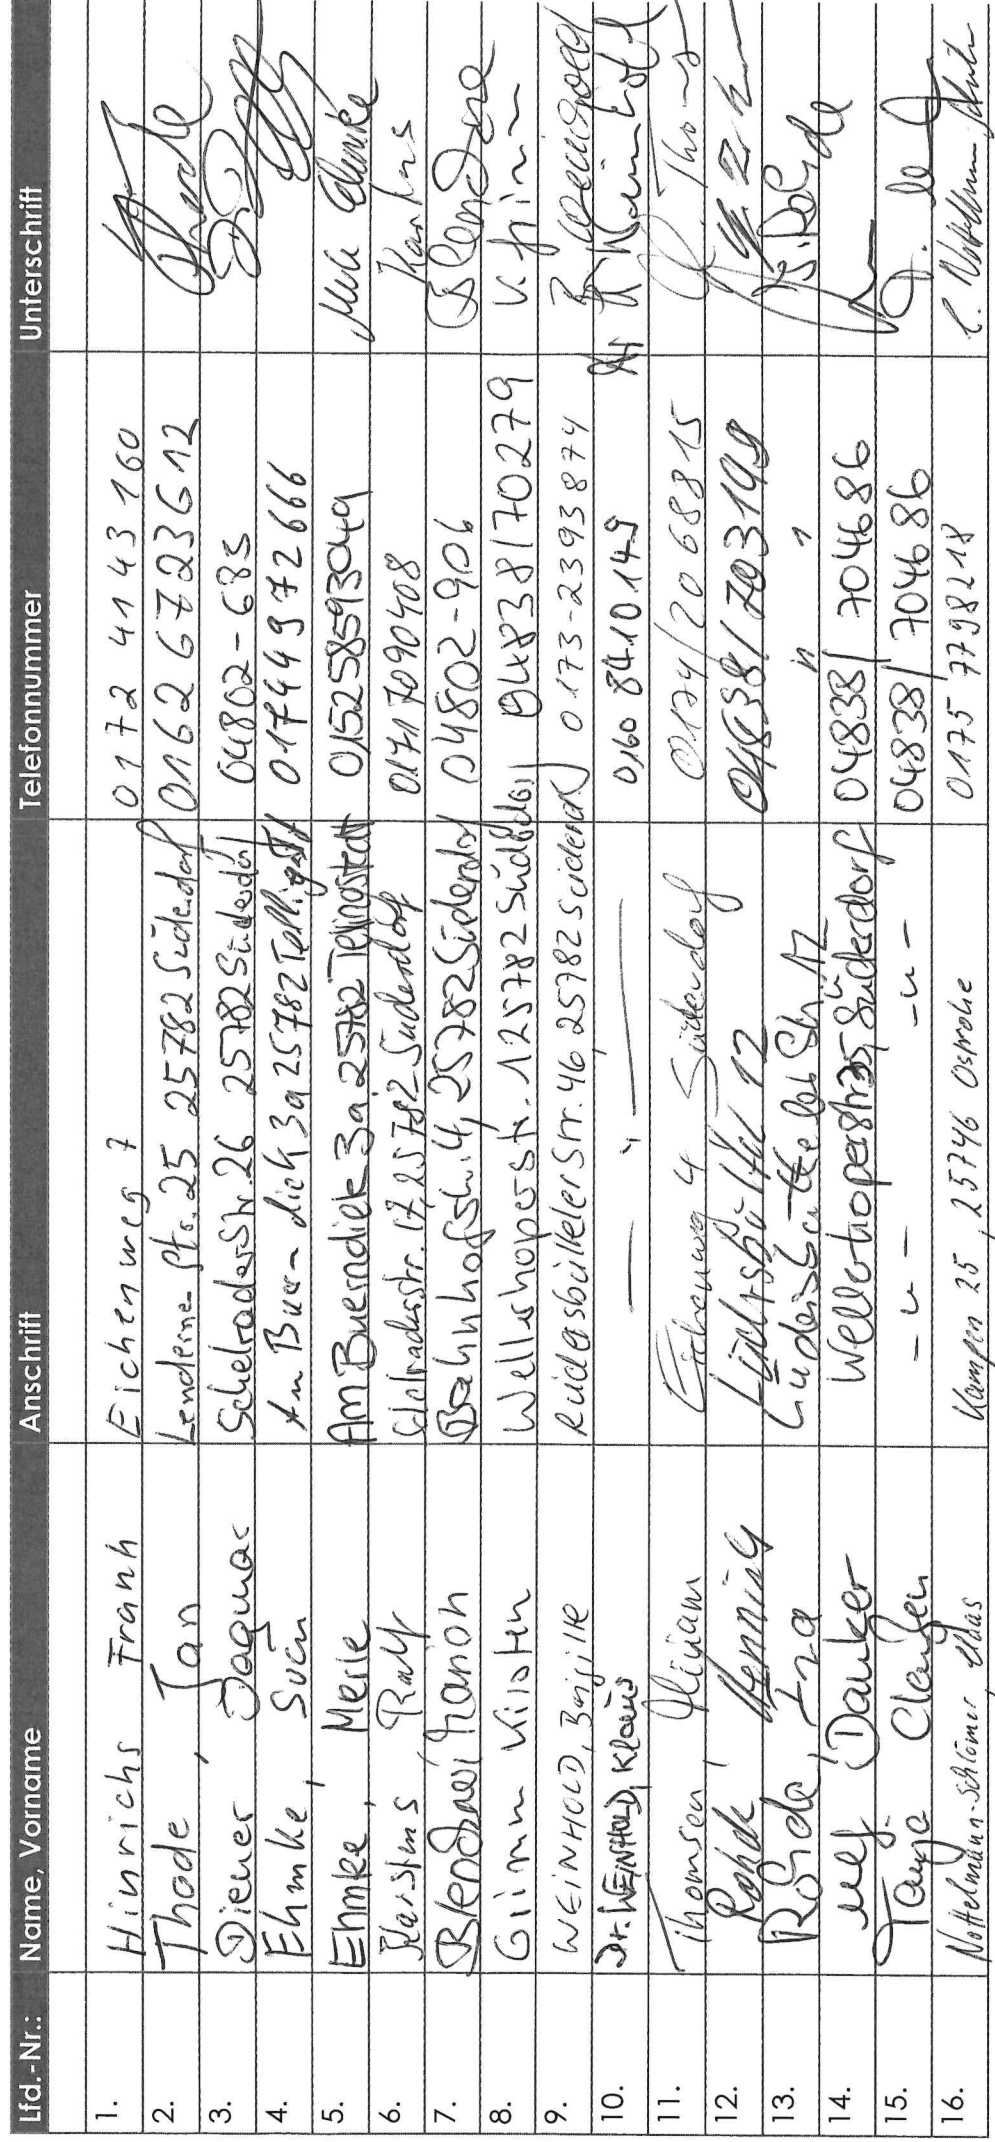 Lfd.-Nr.: Name, Vorname Anschrift Telefonnummer Unterschrift
1. Hinrichs Frank Eichenweg 7 0172 4143 160
2. Thode, Jan Str. 25 25782 Süderdorf 0162 6723612 Thode
3. Diener Dagmar Schelrader Str. 26 25782 Süderdorf 04802-683
4. Ehmke, Sven Am Buern-diek 3a 25782 Tellingstedt 0174 4972666
5. Ehmke, Merle Am Buerndiek 3a, 25782 Tellingstedt 015258593049 Merle Ehmke
6. Karstens Ralf Schelraderstr. 17, 25782 Süderdorf 0171 7090408 Karstens
7. Manon Bahnhofstr. 4, 25782 Süderdorf 04802-906
8. Grimm Kirsten Wellerhoperstr. 1 25782 Süderdorf 04838/70279 K. Grimm
9. WEINHOLD, Brigitte Rüdersbütteler Str. 46 25782 Süderdorf 0173-2393874 B. Weinhold
10. Dr. WEINHOLD, Klaus — " — 0160 8410149
11. Thomsen, Mirjam Eichenweg 4 Süderdorf 0174/2068815
12. Rohde Henning 12 04838/703149
13. Rohde, Ina 12 " " I. Rohde
14. Ulf Danker Wellerhoperstr. 35, Süderdorf 04838/704686
15. Tanja Claußen - " - - " - 04838/704686
16. Nottelmann-Schlömer, Claas Kampen 25, 25746 Ostrohe 0175 7798218